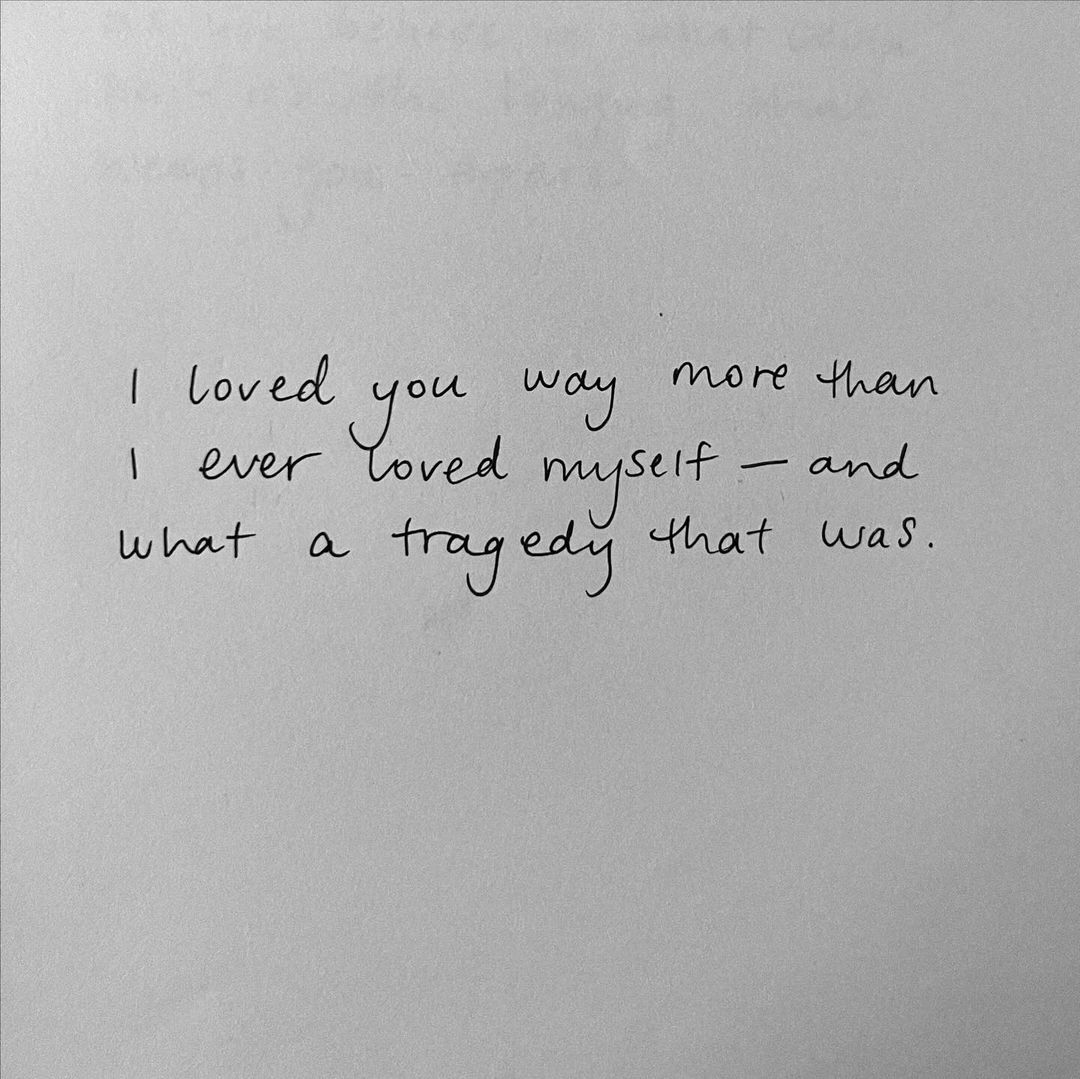 I loved you way more than
I ever loved myself — and
what a tragedy that was.